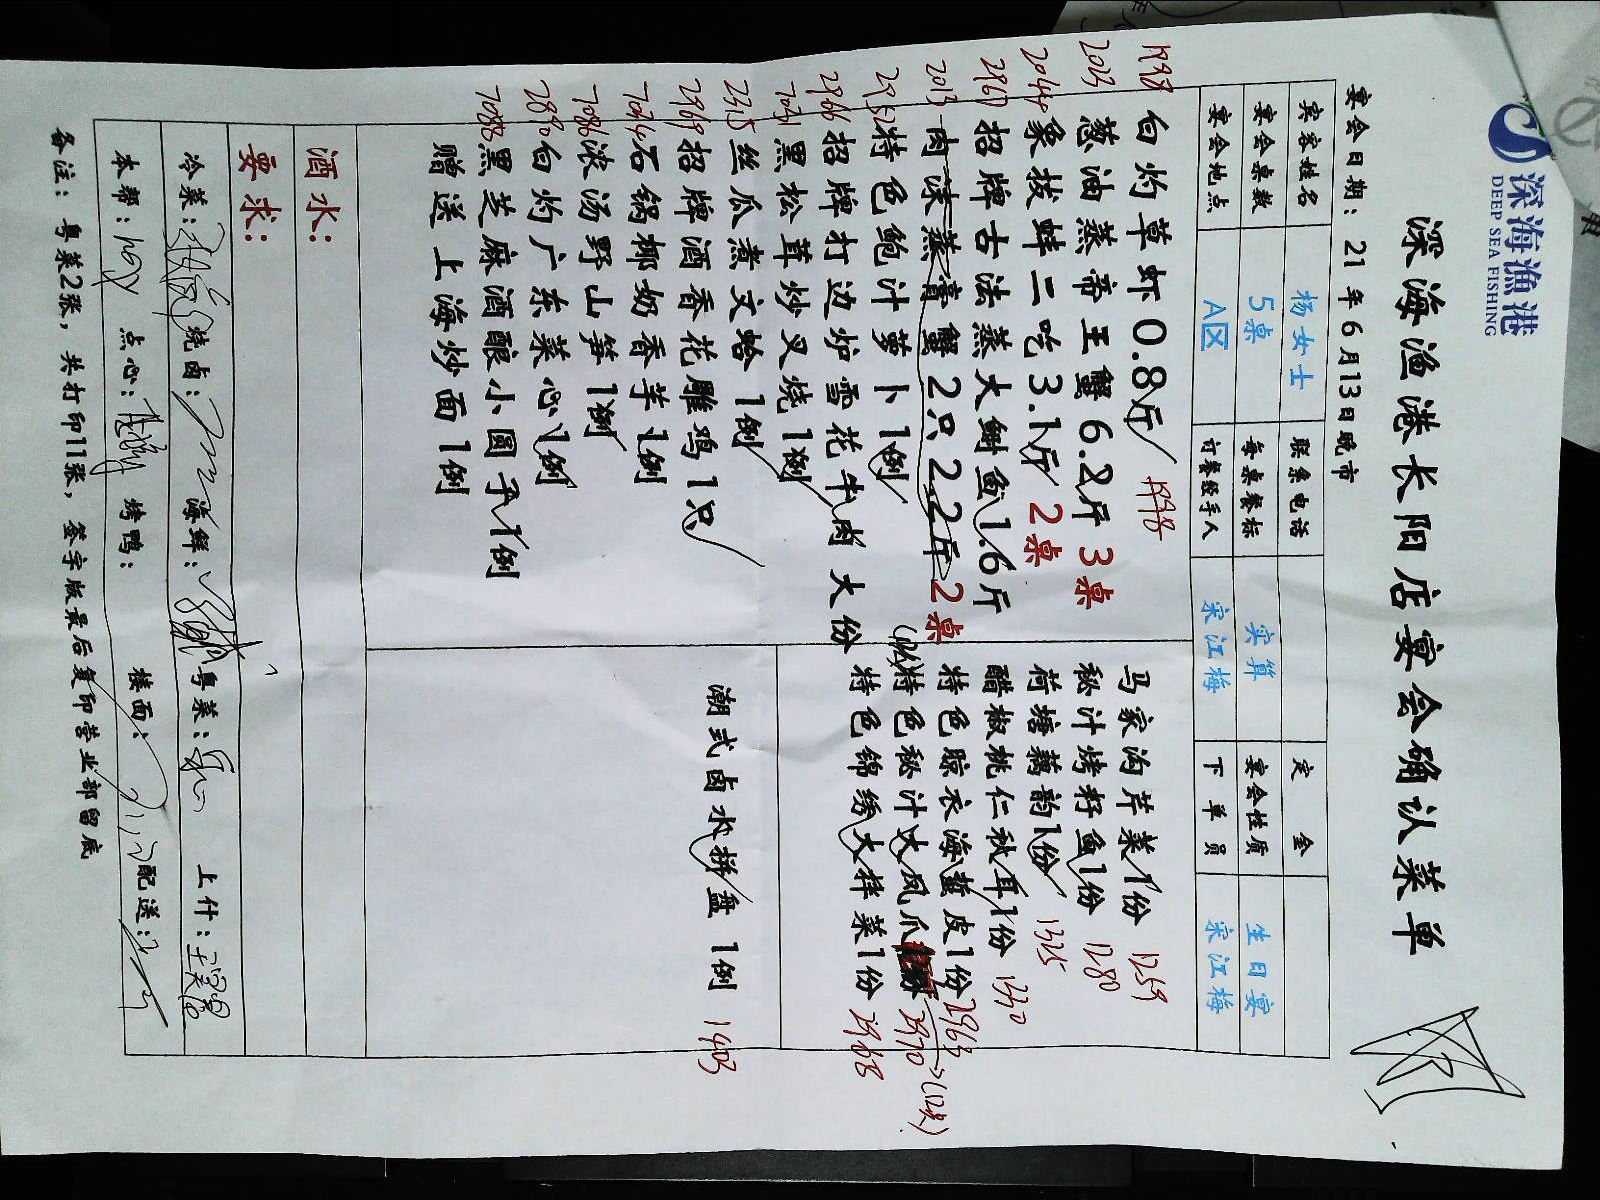 深海渔港
DEEP SEA FISHING
深海渔港长阳店宴会确认菜单
宴会日期：21年6月13日晚市
宾客姓名 杨女士 联系电话 定金
宴会桌数 5桌 每桌餐标 实算 宴会性质 生日宴
宴会地点 A区 订餐经手人 宋江梅 下单员 宋江梅
1998 白灼草虾0.8斤 1998
2013 葱油蒸帝王蟹6.2斤 3桌
2044 象拔蚌二吃3.1斤 2桌
2967 招牌古法蒸大鲥鱼1.6斤
2013 肉沫蒸膏蟹2只2.2斤 2桌
2952 特色鲍汁萝卜1例
2966 招牌打边炉雪花牛肉 大份
7031 黑松茸炒叉烧1例
2325 丝瓜煮文蛤1例
2969 招牌酒香花雕鸡1只
7034 石锅椰奶香芋1例
7086 浓汤野山笋1例
2890 白灼广东菜心1例
7088 黑芝麻酒酿小圆子1例
赠送上海炒面1例
马家沟芹菜1份 1259
秘汁烤籽鱼1份 1280
荷塘藕韵1份 1325
醋椒桃仁秋耳1份 1370
特色晾衣海蜇皮1份 2963
特色秘汁大凤爪 2970→(12只)
特色锦绣大拌菜1份 2968
潮式卤水拼盘1例 1403
酒水：
要求：
冷菜： 烧卤： 海鲜： 粤菜： 上什：
本帮： 点心： 烤鸭： 接面： 配送：
备注：粤菜2张，共打印11张，签字版最后复印营业部留底